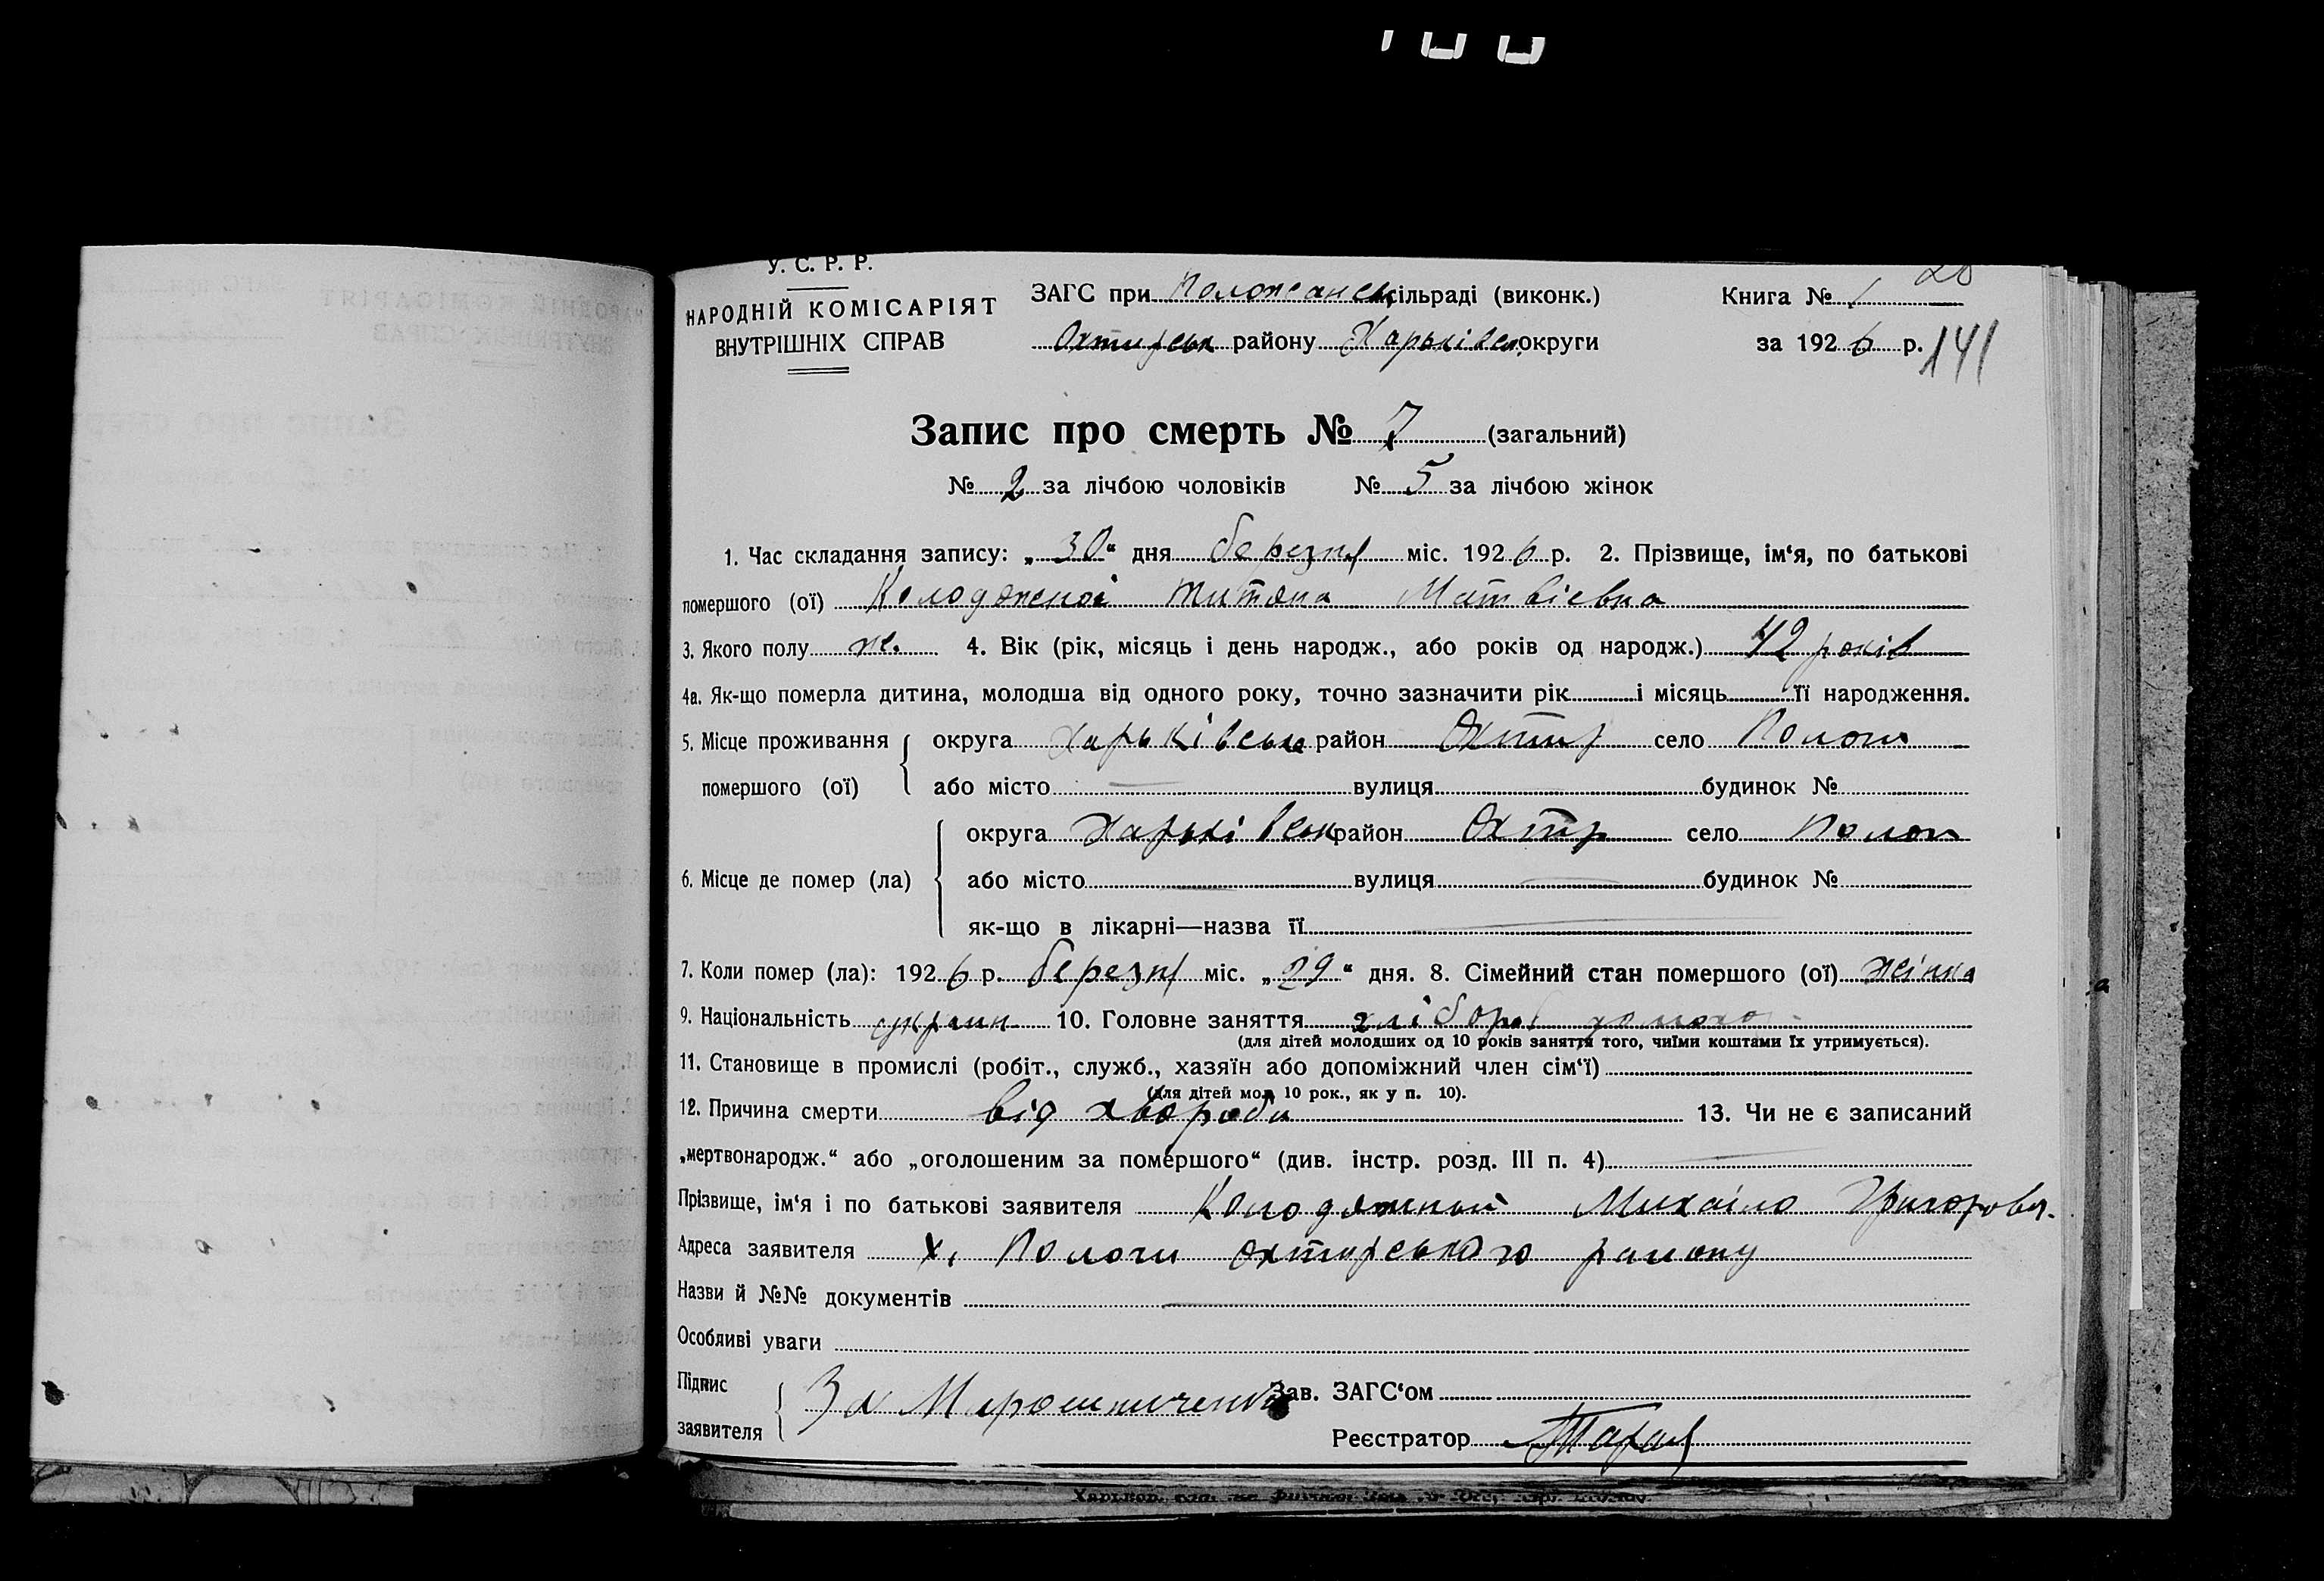 У. С. Р. Р.
НАРОДНІЙ КОМІСАРІЯТ
ВНУТРІШНІХ СПРАВ
ЗАГС при Положанськ сільраді (виконк.)
Охтирськ району Харьківськ округи
Книга № 1
за 1926 р.
141
Запис про смерть № 7 (загальний)
№ 2 за лічбою чоловіків № 5 за лічбою жінок
1. Час складання запису: „30“ дня березня міс. 1926 р. 2. Прізвище, ім‘я, по батькові
помершого (ої) Колодяжної Титяна Матвієвна
3. Якого полу ж. 4. Вік (рік, місяць і день народж., або років од народж.) 42 років
4а. Як-що померла дитина, молодша від одного року, точно зазначити рік і місяць її народження.
5. Місце проживання помершого (ої) округа Харьківська район Охтир село Пологи
або місто вулиця будинок №
6. Місце де помер (ла) округа Харьківськ район Охтр село Полог
або місто вулиця будинок №
як-що в лікарні—назва її
7. Коли помер (ла): 1926 р. березня міс. „29“ дня. 8. Сімейний стан помершого (ої) жінка
9. Національність украин 10. Головне заняття хлібороб
(для дітей молодших од 10 років заняття того, чиїми коштами їх утримується).
11. Становище в промислі (робіт., служб., хазяїн або допоміжний член сім‘ї)
(для дітей мол. 10 рок., як у п. 10).
12. Причина смерти від хвороби 13. Чи не є записаний
„мертвонародж.“ або „оголошеним за помершого“ (див. інстр. розд. III п. 4)
Прізвище, ім‘я і по батькові заявителя Колодяжный Михаіло Григоров.
Адреса заявителя х. Пологи Охтирського району
Назви й №№ документів
Особливі уваги
Підпис заявителя За Мирошниченко
Зав. ЗАГС‘ом
Реєстратор